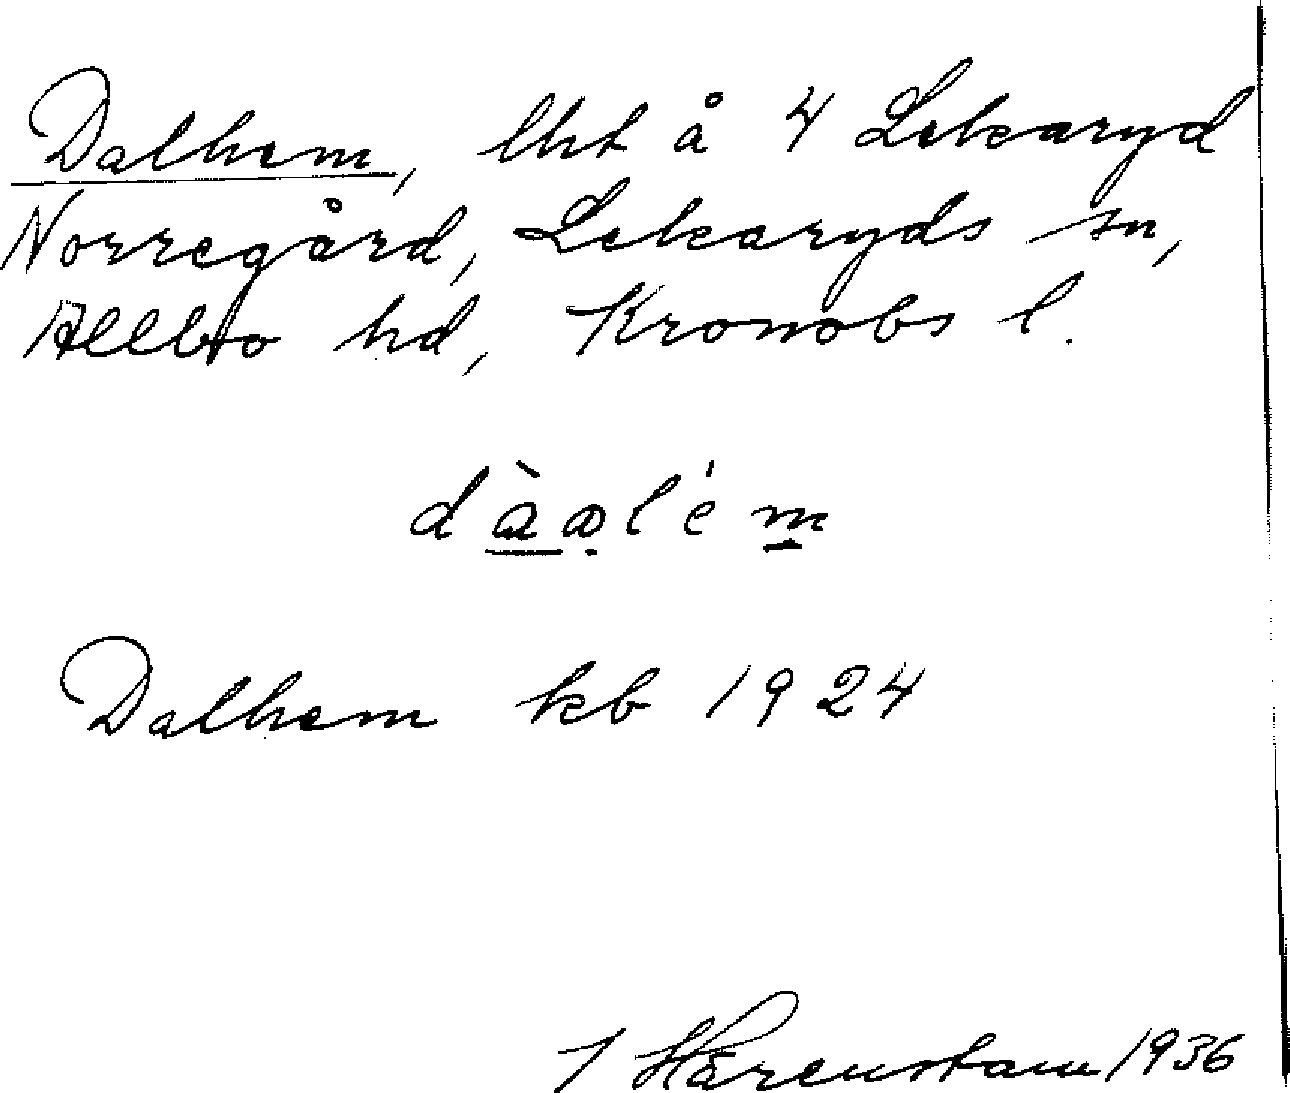 Dalhem, lht å 4 Lekaryd
Norregård, Lekaryds sn,
Allbo hd, Kronobs l.
dàalém
Dalhem kb 1924
I Hårenstam 1936